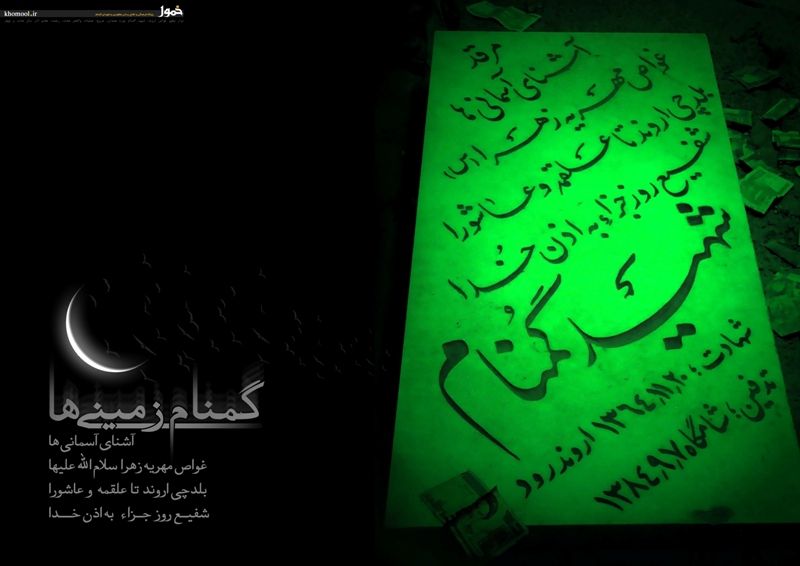 khomool.ir
خمول
مرقد
آشنای آسمانی ها
غواص مهریه زهرا (س)
بلدچی اروند تا علقمه و عاشورا
شفیع روز جزاء به اذن خدا
شهید گمنام
شهادت: ۱۳۶۴،۱۱،۲۰ اروندرود
تدفین: شامگاه ۱۳۸۴،۹،۷
گمنام زمینی‌ها
آشنای آسمانی‌ها
غواص مهریه زهرا سلام الله علیها
بلدچی اروند تا علقمه و عاشورا
شفیع روز جزاء به اذن خدا